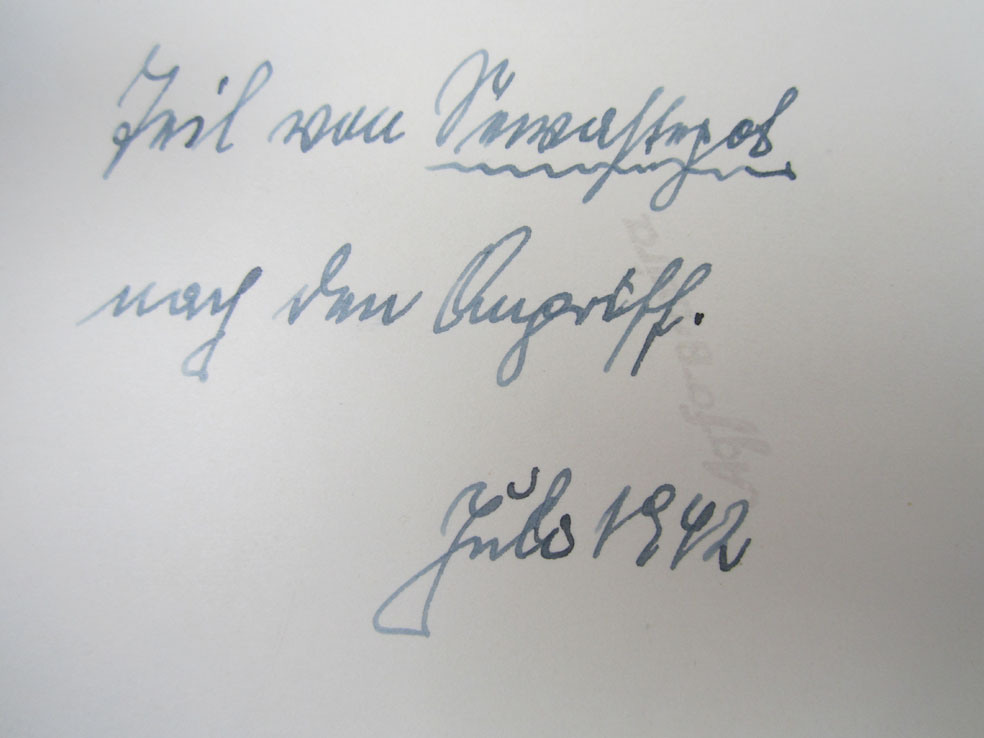 Teil von Sewastopol
nach den Angriff.
Julo 1942